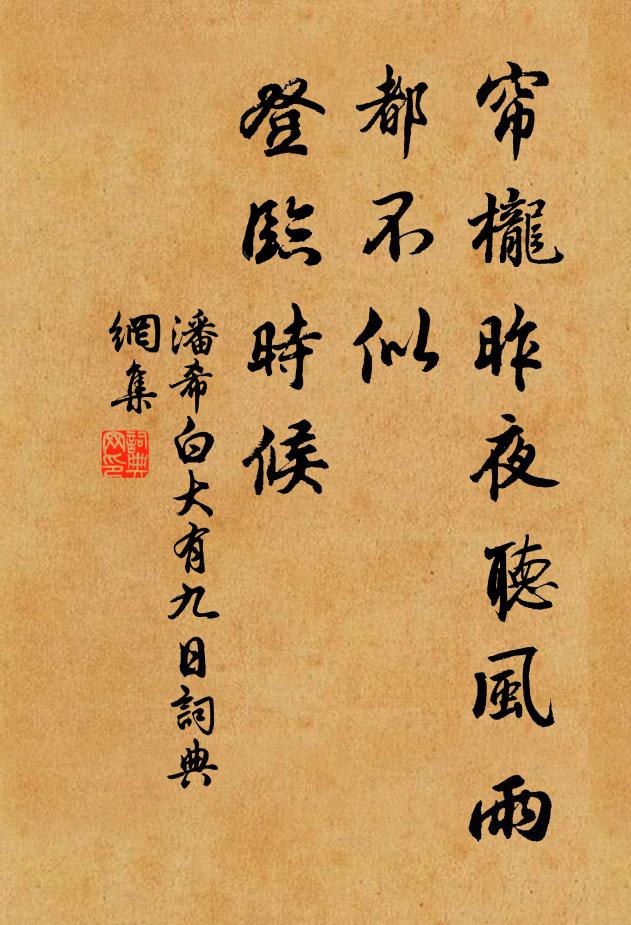 帘櫳昨夜聽風雨
都不似
登臨時候
潘希白大有九日詞典
網集
詞典網印